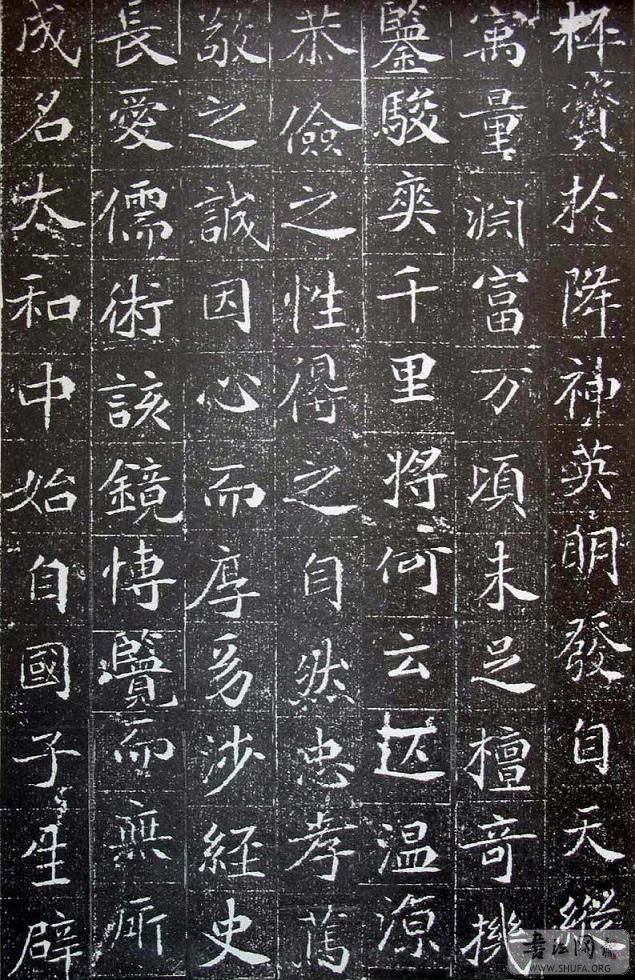 杯資於降神英明發自天縱
寓量淵富万頃未足檀奇機
鑒駿爽千里將何云迅温源
恭儉之性得之自然忠孝篤
敬之誠因心而厚爰涉經史
長愛儒術該鏡博覽而無所
成名太和中始自國子生辟
书法网
WWW.SHUFA.ORG